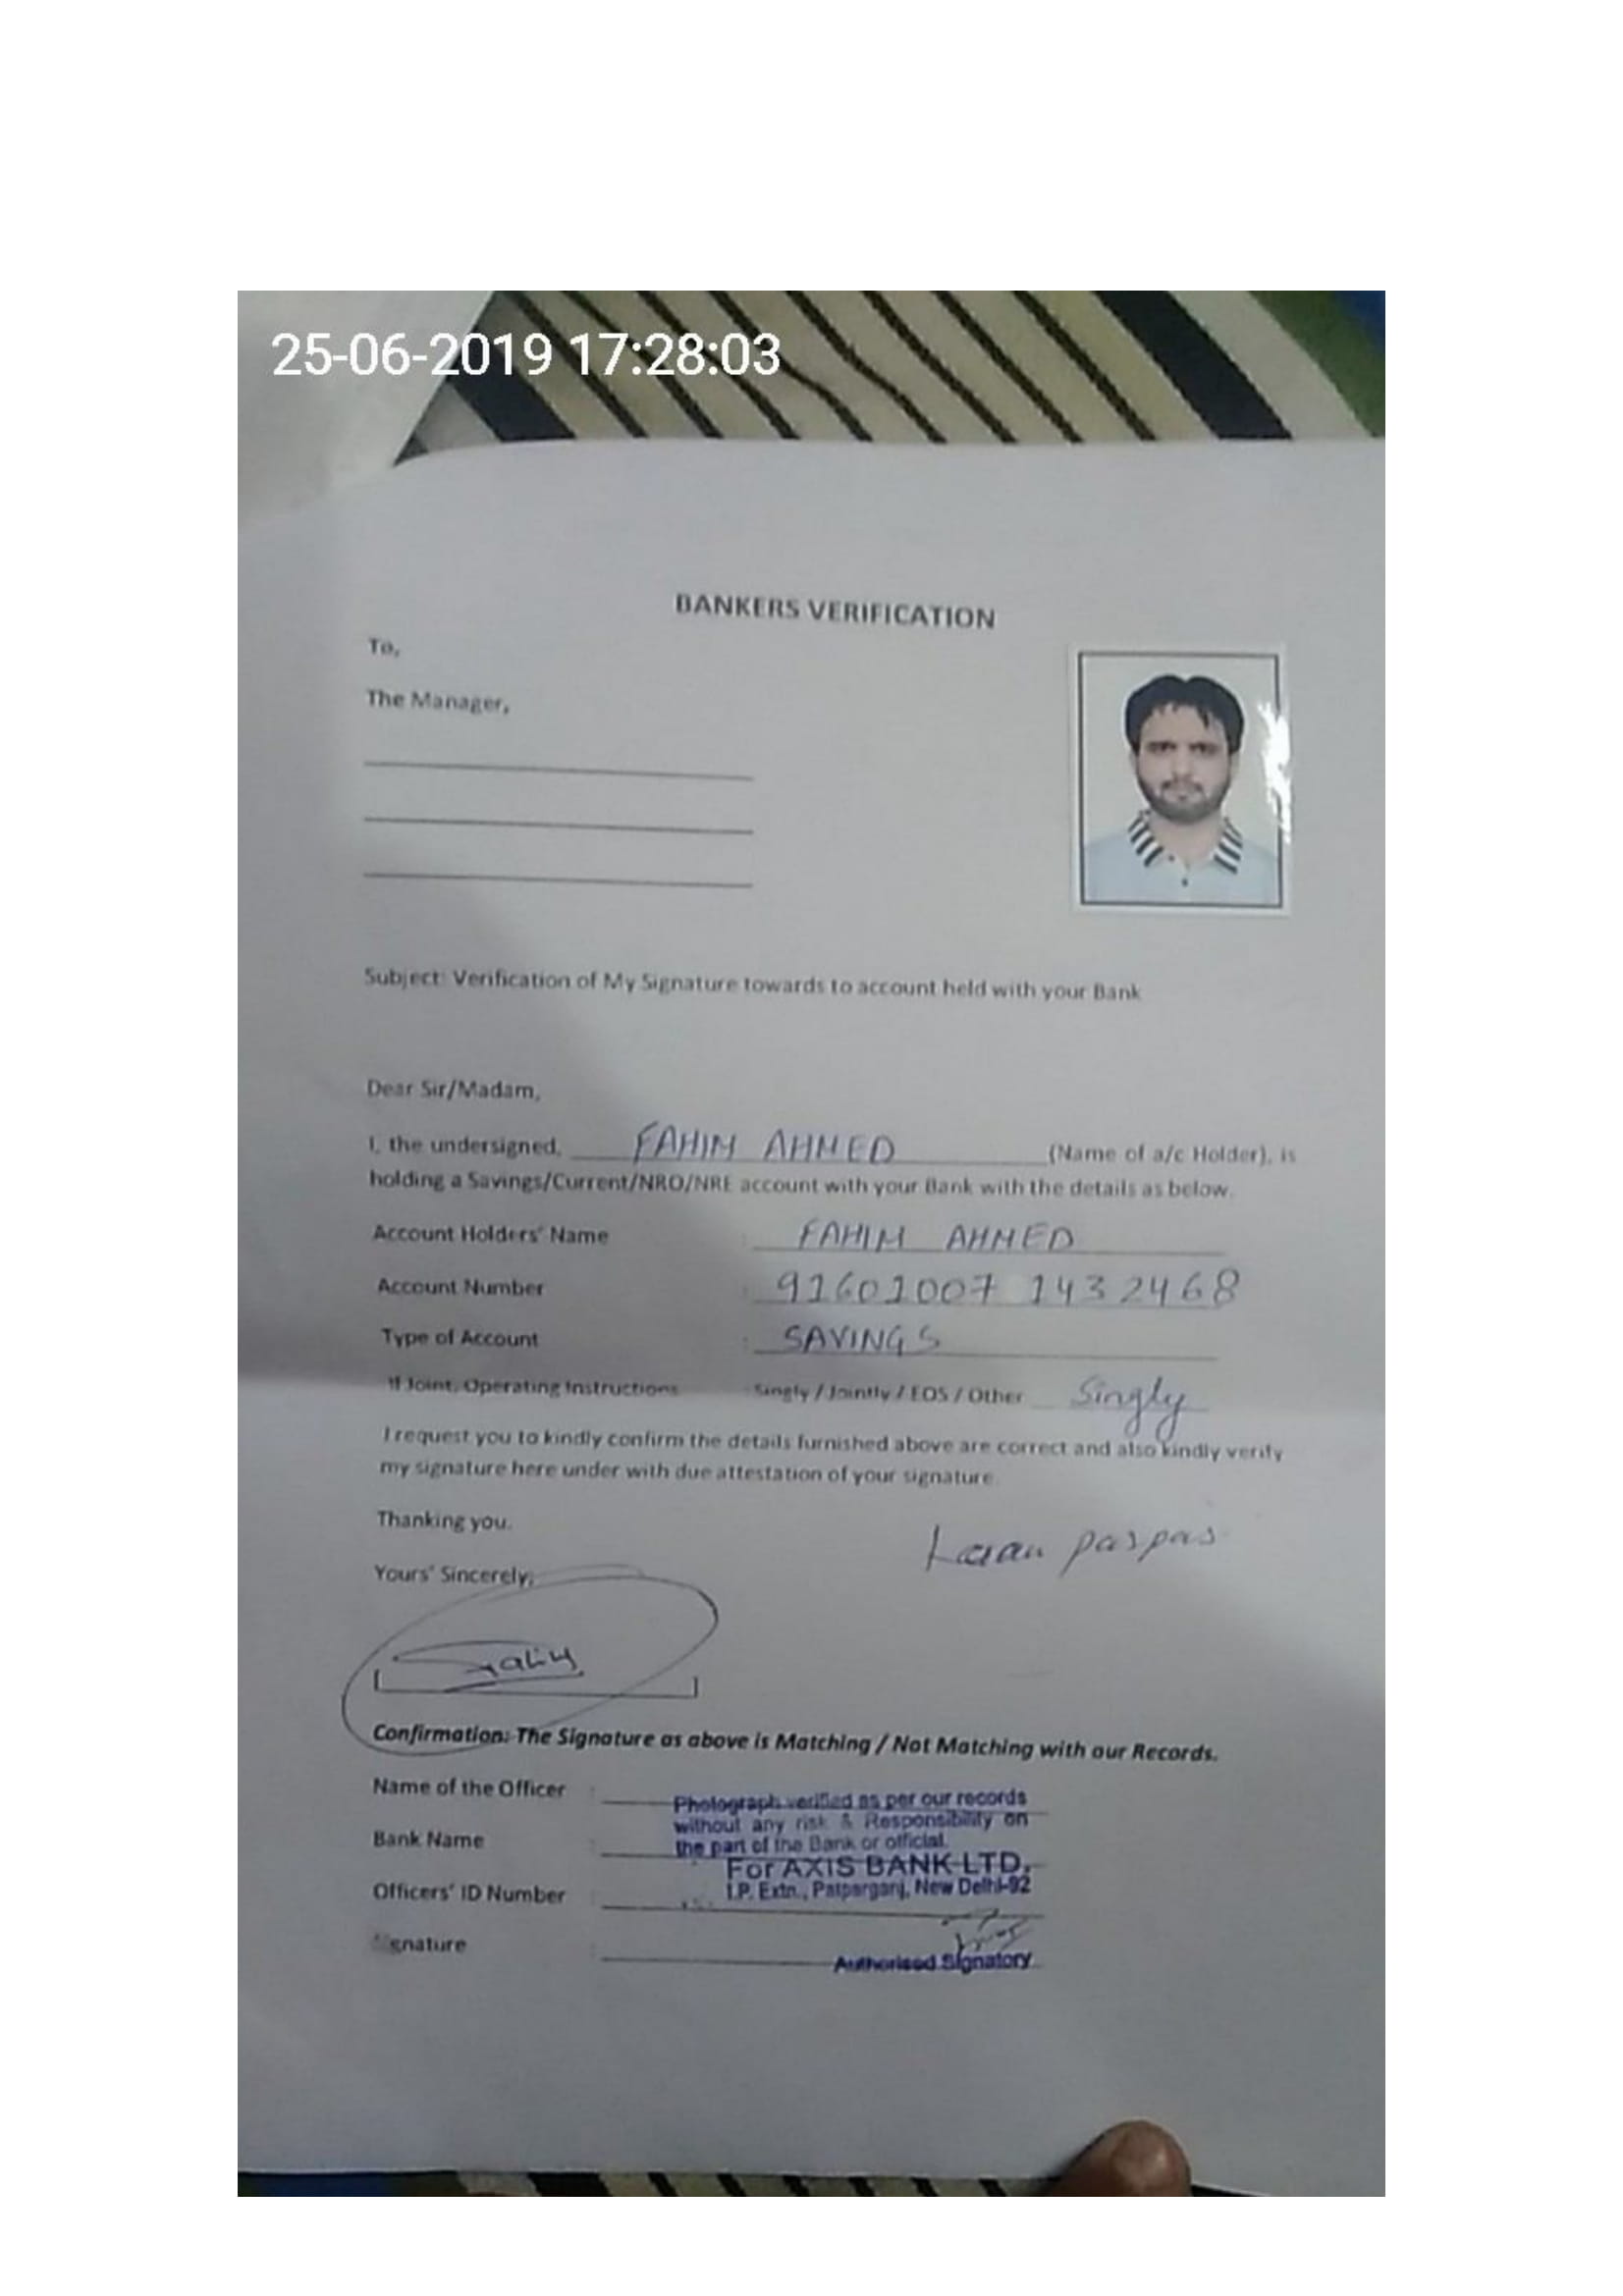 25-06-2019 17:28:03
BANKERS VERIFICATION
To,
The Manager,
Subject: Verification of My Signature towards to account held with your Bank
Dear Sir/Madam,
I, the undersigned, FAHIM AHMED (Name of a/c Holder), is
holding a Savings/Current/NRO/NRE account with your Bank with the details as below.
Account Holders' Name : FAHIM AHMED
Account Number : 91601007 1432468
Type of Account : SAVINGS
If Joint, Operating Instructions Singly / Jointly / EOS / Other Singly
I request you to kindly confirm the details furnished above are correct and also kindly verify
my signature here under with due attestation of your signature
Thanking you.
Yours' Sincerely,
Confirmation: The Signature as above is Matching / Not Matching with our Records.
Name of the Officer :
Photograph verified as per our records
without any risk & Responsibility on
Bank Name :
the part of the Bank or official.
For AXIS BANK LTD.
Officers' ID Number :
I.P. Extn., Patparganj, New Delhi-92
gnature :
Authorised Signatory